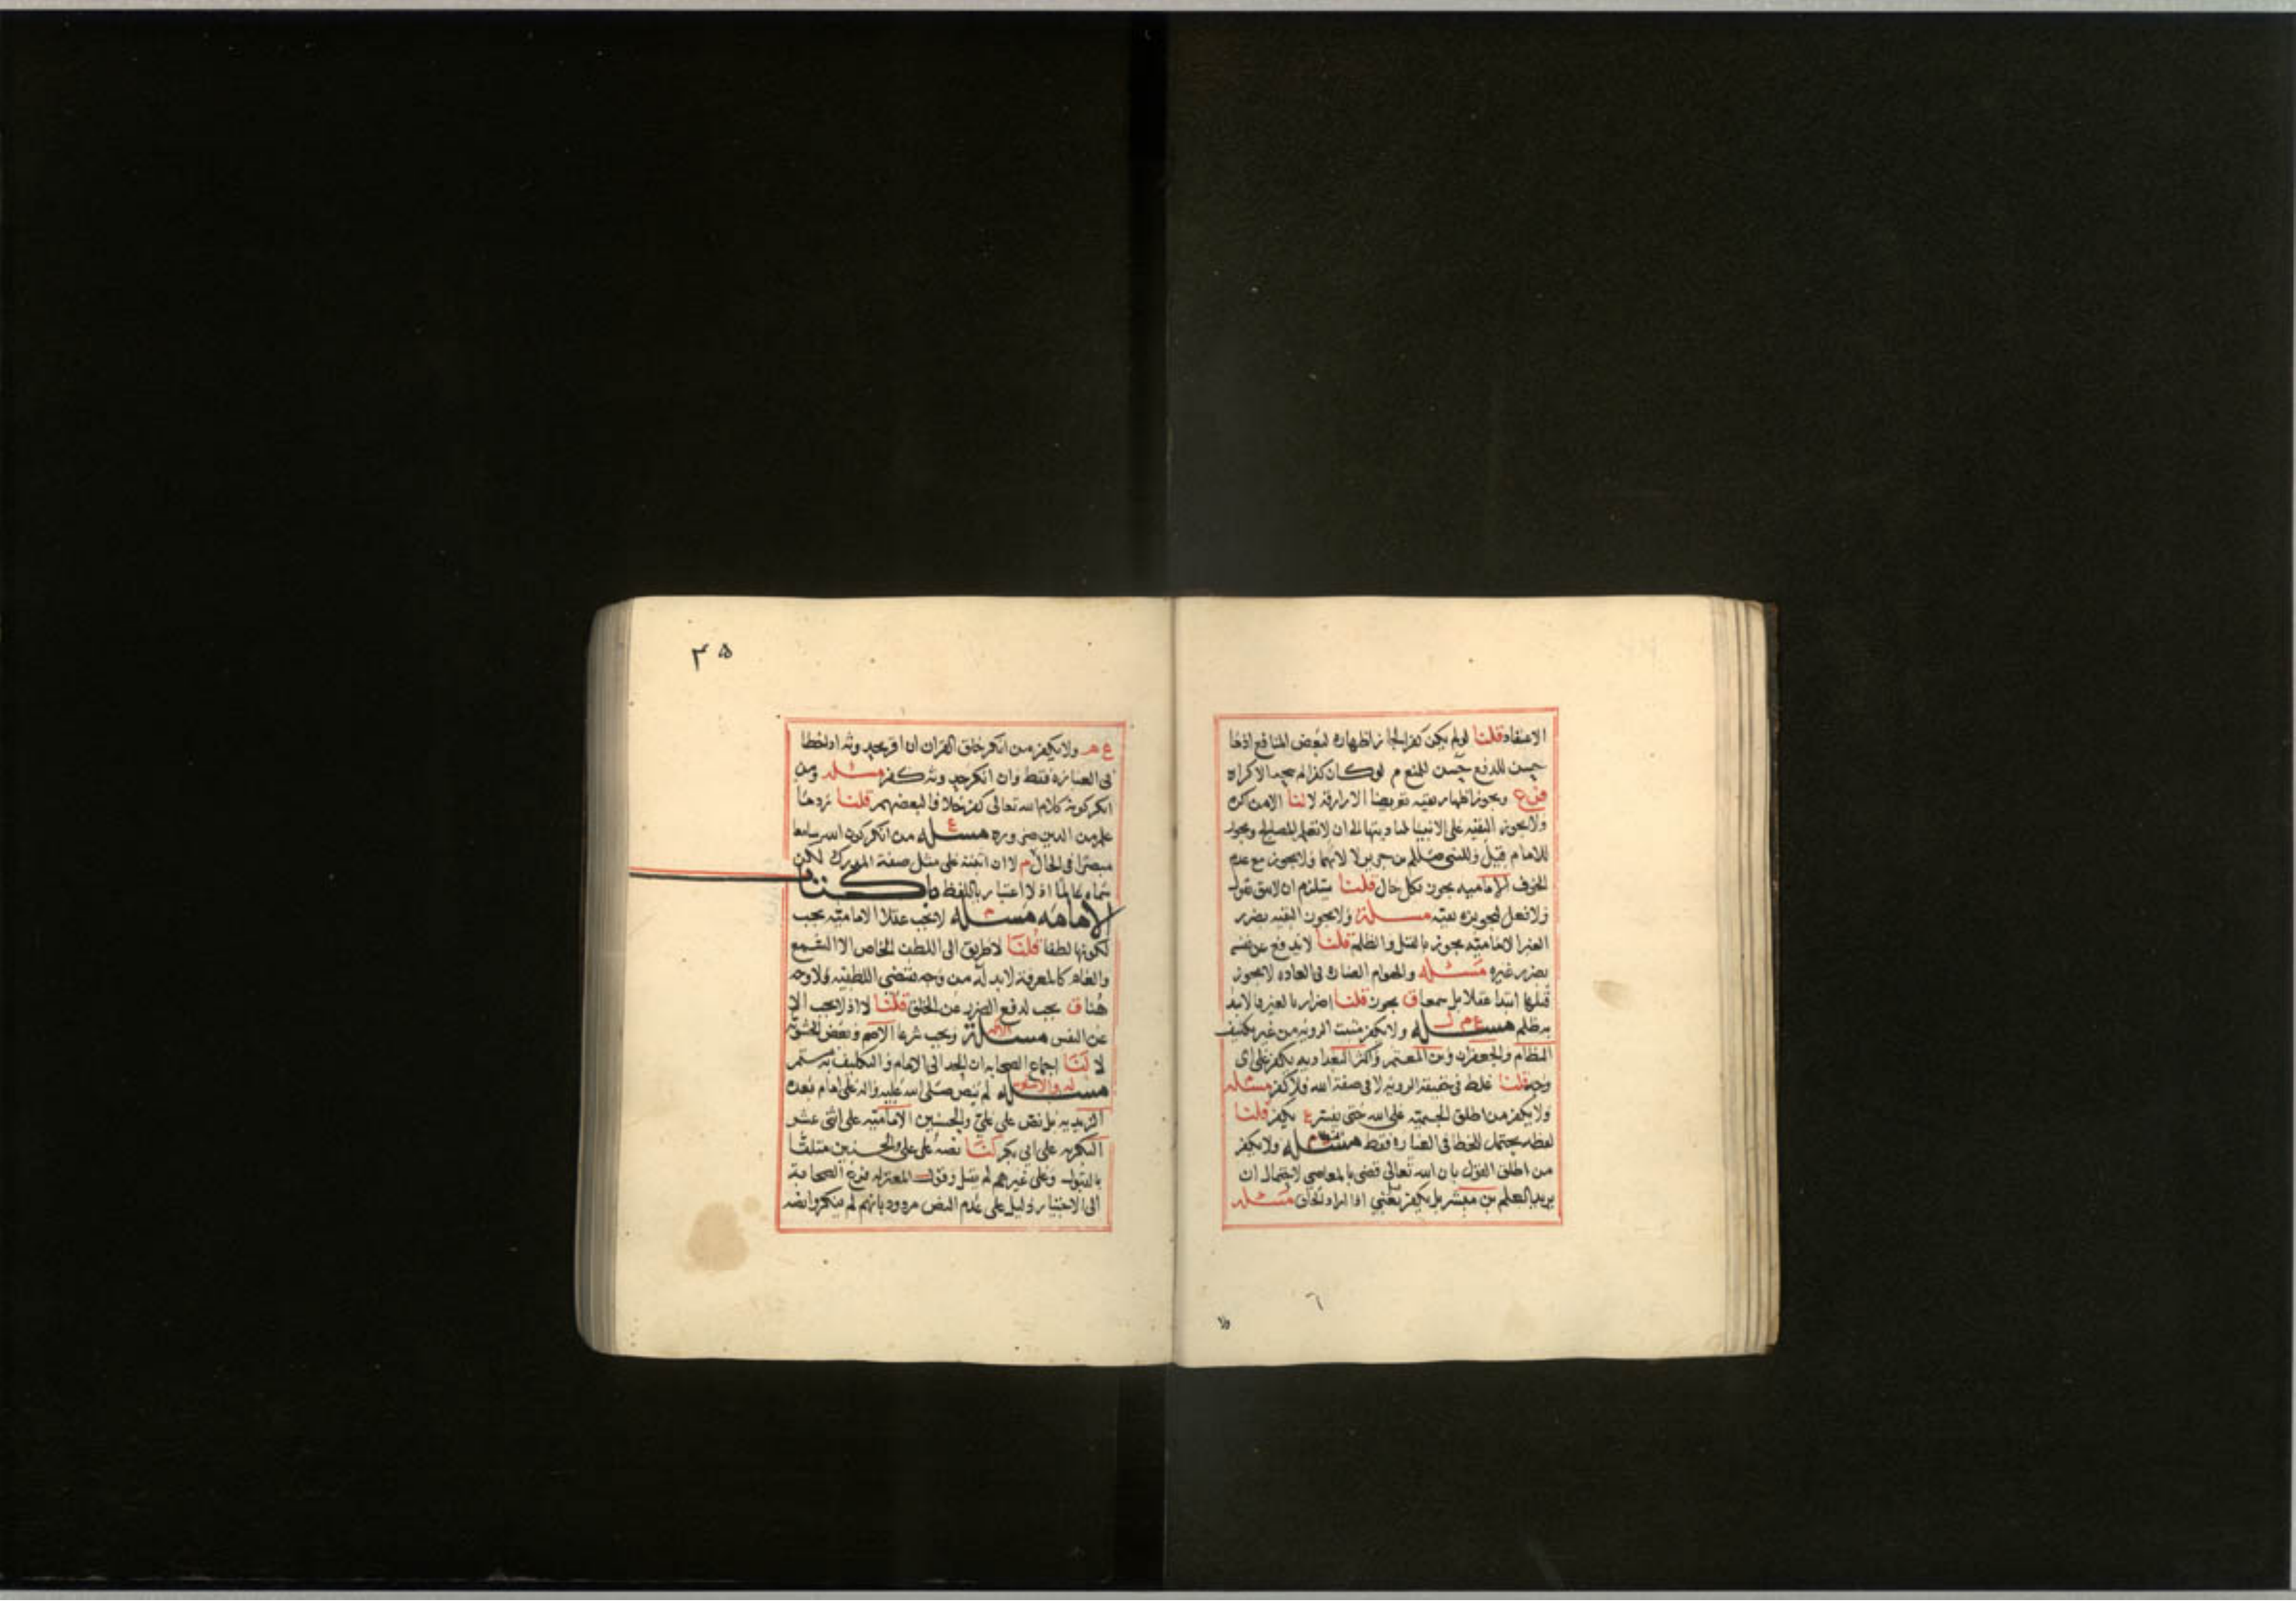 الاعتقاد قلنا لو لم يكن كفرا لجاز اظهاره لبعض المنافع اذ ما
حسن للدفع حسن للنفع م لو كان كفرا لم يبحه الاكراه
فرع ويجوز اظهار بقيه تعريضا الا رادته لا لنا الا من اكره
ولا يجوز التقيه على الانبيا لتاديتها الى ان لا تعلم المصالح ويجوز
للامام قيل وللنبي سليمن بن جرير لا لايهما ولا يجوز مع عدم
الخوف الاماميه يجوز بكل حال قلنا يستلزم ان لا يثق بقول
ولا فعل لتجويزه تقيه مسئلة ولا يجوز التقيه بضرر
الغير الاماميه يجوز بالقتل والظلم قلنا لا يدفع عن نفسه
بضرر غيره مسئله والهوام الضاره في العاده لا يجوز
قتلها ابتدا عقلا بل سمعا ق يجوز قلنا اضرار بالغير بالابتدا
به ظلم مسئله ع م ولا يكفر مثبت الرويه من غير تكييف
النظام والجعفران وبن المعتمر واكثر البغداديه يكفر على اي
وجه قلنا غلط في حقيقة الرويه لا في صفة الله فلا كفر مسئله
ولا يكفر من اطلق الجسميه على الله حتى يفسر ع يكفر قلنا
لفظه يحتمل الخطا في العباره فقط مسئله ولا يكفر
من اطلق القول بان الله تعالى قضى بالمعاصي لاحتمال ان
يريد العلم بن مبشر بل يكفر يعني اذا اراد الخلق مسئله
٣٥
ع م ولا يكفر من انكر خلق القران ان اقر بحدوثه اذ اخطا
في العباره فقط وان انكر حدوثه كفر مسئله ومن
انكر كونه كلام الله تعالى كفر خلافا لبعضهم قلنا رد ما
علم من الدين ضروره مسئله ع من انكر كون الله سامعا
مبصرا في الحال م لا ان اثبته على مثل صفة المدرك لكن
سماه عالما اذ لا اعتبار باللفظ كتاب
الامامه مسئله لا تجب عقلا الاماميه يجب
لكونها لطفا قلنا لا طريق الى اللطف الخاص الا السمع
والعام كالمعرفة لا بد له من وجه يقتضي اللطفيه ولا وجه
هنا ق يجب لدفع الضرر عن الخلق قلنا لا اذ لا يجب الا
عن النفس مسئلة الاكثر وتجب شرعا الاصم وبعض الحشويه
لا لنا اجماع الصحابه ان الحد الى الامام والتكليف به مستمر
مسئله لم ينص صلى الله عليه واله على امام بعده
الزيديه بل نص على علي والحسنين الاماميه على اثنى عشر
البكريه على ابي بكر لنا نصه على علي والحسنين متلقا
بالقبول وعلى غيرهم لم ينقل وقول المعتزله فزع الصحابة
الى الاختيار دليل على عدم النص مردود بانهم لم ينكروا نصه